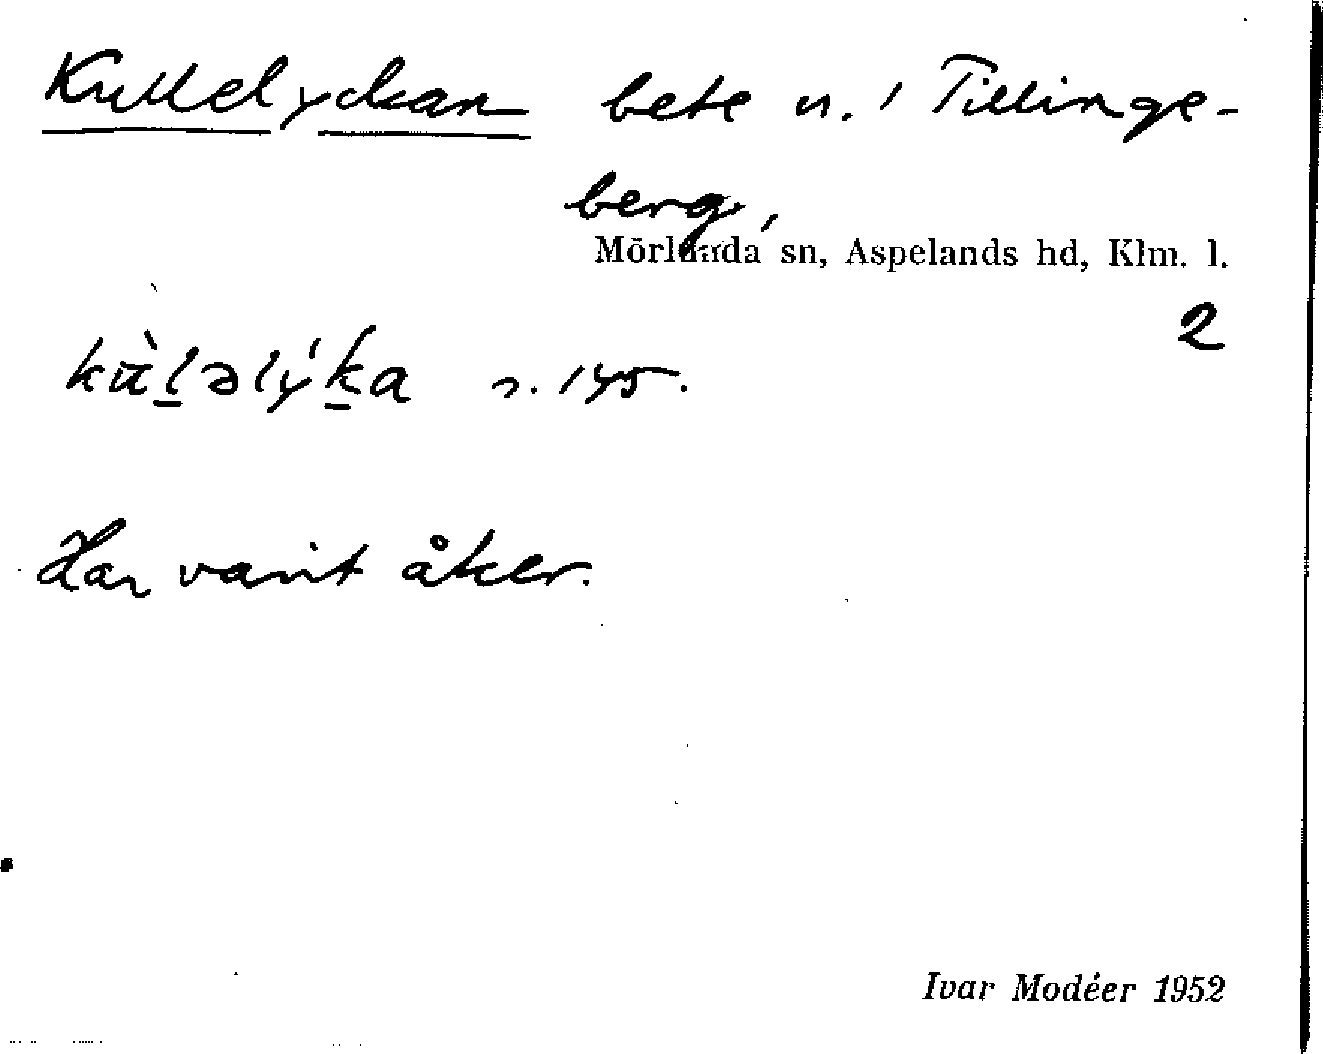 Kullelyckan bete n. i Tillinge-
berg,
Mörlunda sn, Aspelands hd, Klm. l.
2
kùl̠əlýk̠a s. 145.
Har varit åker.
Ivar Modéer 1952